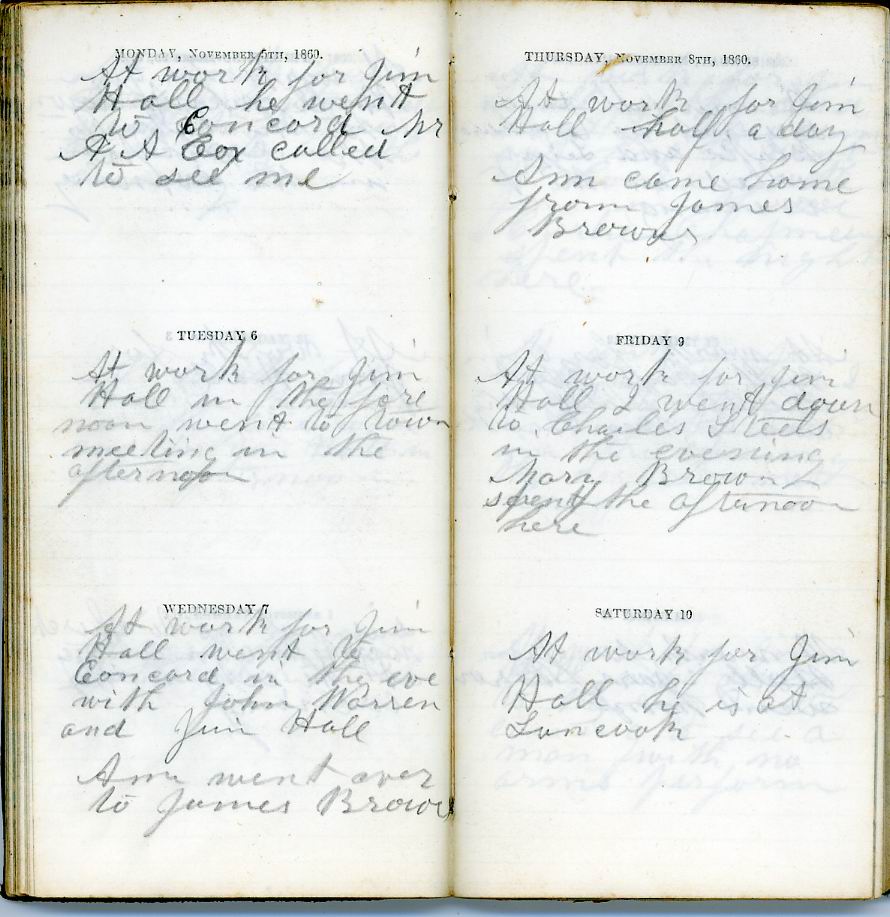 MONDAY, NOVEMBER 5TH, 1860.
At work for Jim
Hall he went
to Concord Mr
A A Cox called
to see me
TUESDAY 6
At work for Jim
Hall in the fore
noon went to town
meeting in the
afternoon
WEDNESDAY 7
At work for Jim
Hall went to
Concord in the eve
with John Warren
and Jim Hall
Ann went over
to James Browns
THURSDAY, NOVEMBER 8TH, 1860.
At work for Jim
Hall half a day
Ann came home
from James
Browns
FRIDAY 9
At work for Jim
Hall I went down
to Charles
in the evening
Mary Brown
spent the afternoon
here
SATURDAY 10
At work for Jim
Hall he is at
Suncook